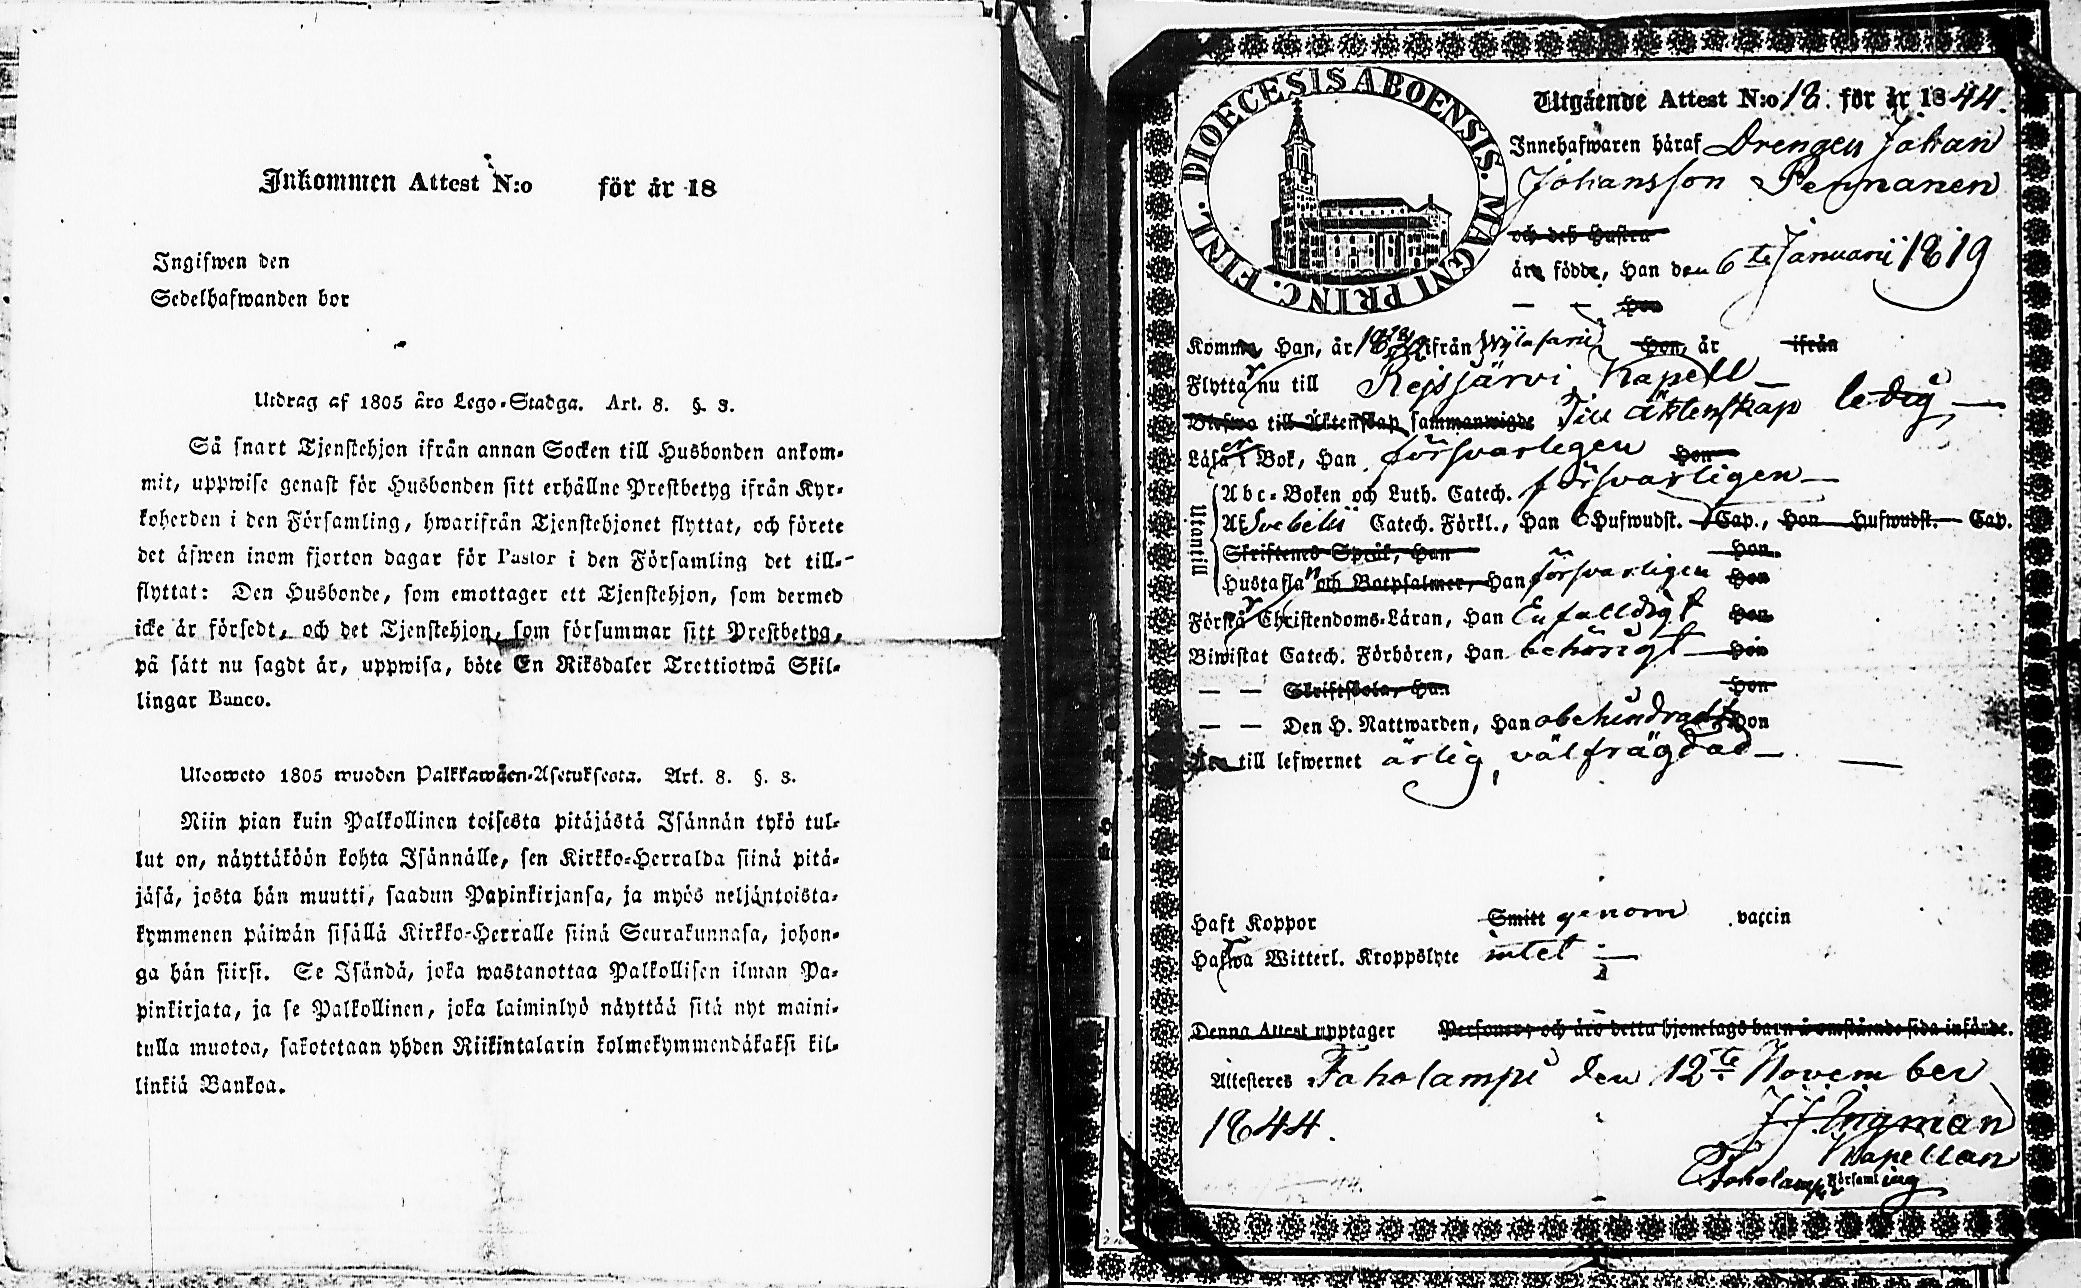 Inkommen Attest N:o för år 18
Ingifwen den
Sedelhafwanden bor
Utdrag af 1805 års Lego-Stadga. Art. 8. §. 8.
Så snart Tjenstehjon ifrån annan Socken till Husbonden ankom-
mit, uppwise genast för Husbonden sitt erhållne Prestbetyg ifrån Kyr-
koherden i den Församling, hwarifrån Tjenstehjonet flyttat, och förete
det äfwen inom fjorton dagar för Pastor i den Församling det till-
flyttat: Den Husbonde, som emottager ett Tjenstehjon, som dermed
icke är försedt, och det Tjenstehjon, som försummar sitt Prestbetyg,
på sätt nu sagdt är, uppwisa, böte En Riksdaler Trettiotwå Skil-
lingar Banco.
Ulosweto 1805 wuoden Palkkawäen-Asetuksesta. Art. 8. §. 8.
Niin pian kuin Palkollinen toisesta pitäjästä Isännän tykö tul-
lut on, näyttäköön kohta Isännälle, sen Kirkko-Herralda siinä pitä-
jäsä, josta hän muutti, saadun Papinkirjansa, ja myös neljäntoista-
kymmenen päiwän sisällä Kirkko-Herralle siinä Seurakunnasa, johon-
ga hän siirsi. Se Isändä, joka wastanottaa Palkollisen ilman Pa-
pinkirjata, ja se Palkollinen, joka laiminlyö näyttää sitä nyt maini-
tulla muotoa, sakotetaan yhden Riikintalarin kolmekymmendäkaksi kil-
linkiä Bankoa.
DIOECESIS ABOENSIS. MAGNI PRINC. FINL.
Utgående Attest N:o 18. för år 1844.
Innehafwaren häraf Drengen Johan
Johansson Pennanen
och deß Hustru
äro födde, Han den 6te Januarii 1819
— — Hon
Komma Han, år ifrån Hon, år ifrån
Flyttar nu till Rejsjärvi Kapell —
till Äktenskap sammanwigde Till äktenskap ledig —
Läser i Bok, Han försvarligen Hon
Utantill
Abc-Boken och Luth. Catech. försvarligen —
Af Svebelii Catech. Förkl., Han 6 Hufwudst. Cap., Hon Hufwudst. Cap.
Skriftenes Språk, Han Hon
Hustaflan och Botpsalmer, Han försvarligen Hon
Förstår Christendoms-Läran, Han Enfalldigt Hon
Biwistat Catech. Förhören, Han behörigt Hon
— — Skriftskola, Han Hon
— — Den H. Nattwarden, Han obehindradt Hon
Äro till lefwernet ärlig, välfrägdad —
Haft Koppor Smitt genom vaccin
Hafwa Witterl. Kroppslyte intet —
Denna Attest upptager Personer, och äro detta hjonelags barn å omstående sida införde.
Attesteres Toholampi den 12te November
1844.
J J Ingman
Kapellan
Toholampi Församling